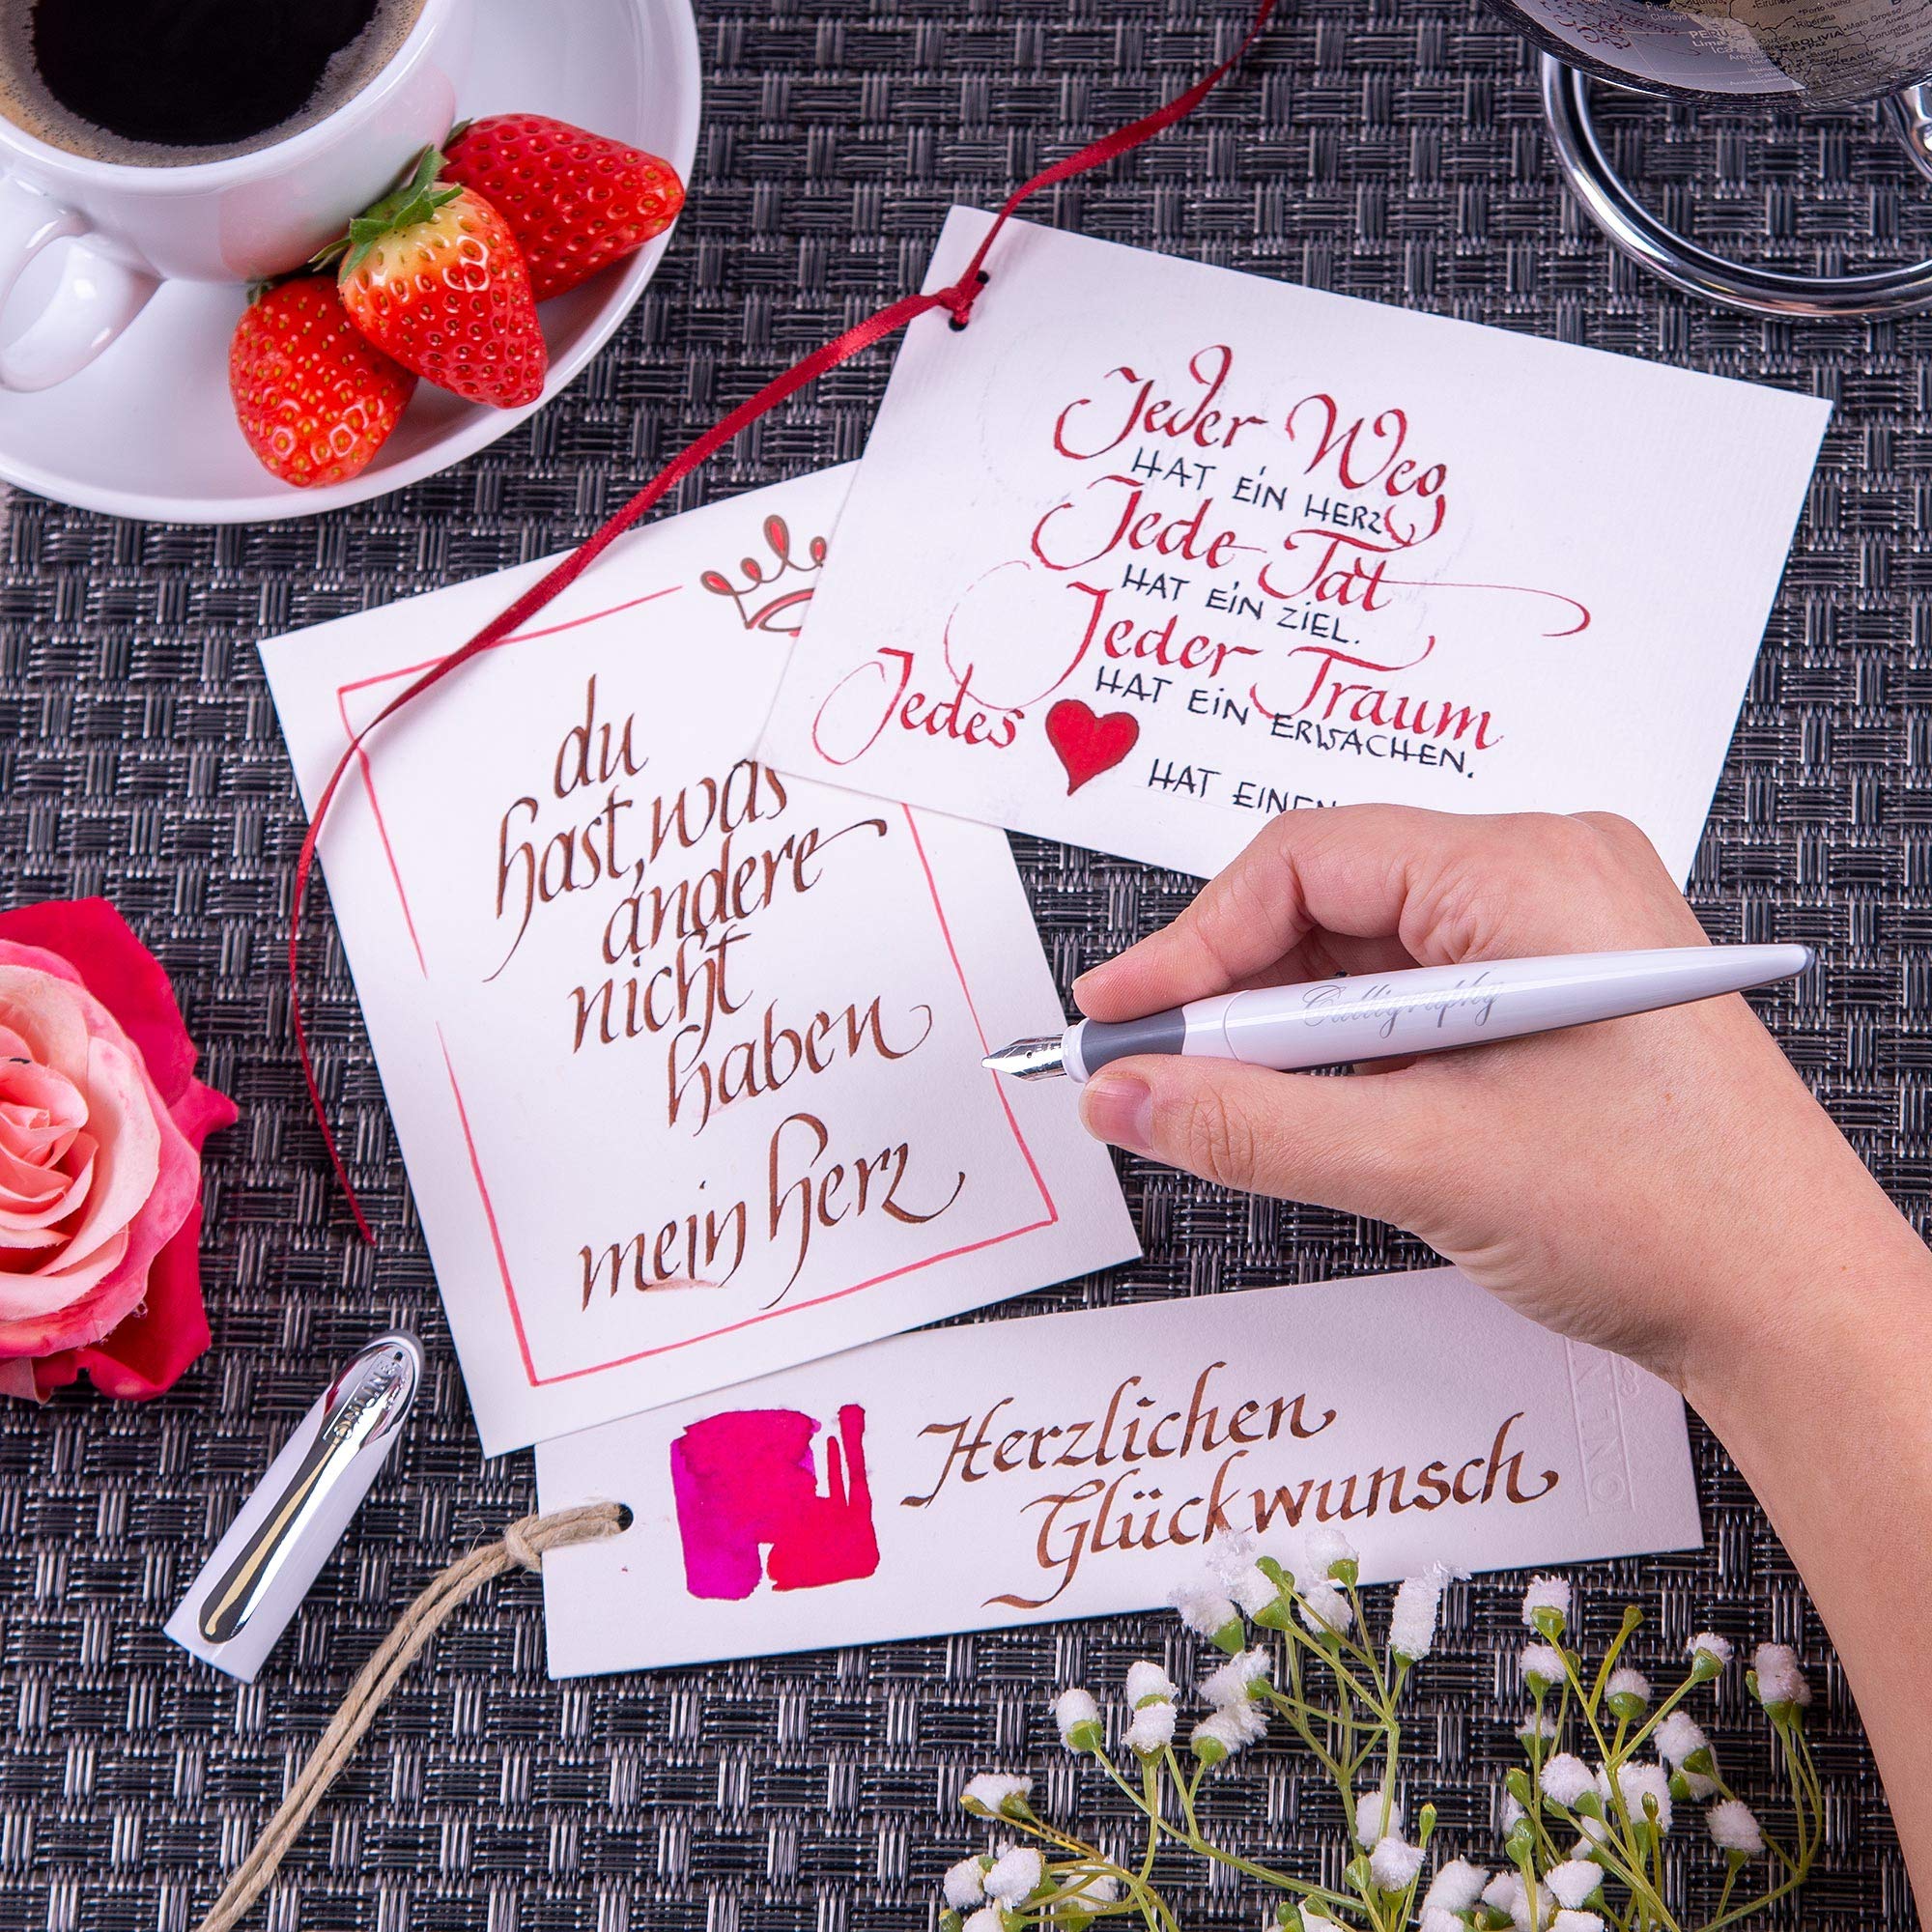 PERU
Lima
BOLIVIA
Jeder Weg
HAT EIN HERZ
Jede Tat
HAT EIN ZIEL.
Jeder Traum
HAT EIN ERWACHEN.
Jedes
HAT EINEN
du
hast, was
andere
nicht
haben
mein herz
Calligraphy
ONLINE
Herzlichen
Glückwunsch
ONLINE